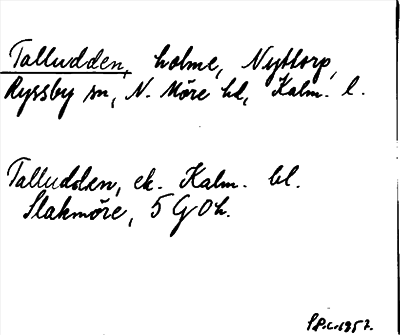 Talludden, holme, Nyttorp,
Ryssby sn, N. Möre hd, Kalm. l.
Talludden, ek. Kalm. bl.
Slakmöre, 5 G 0h.
1957.